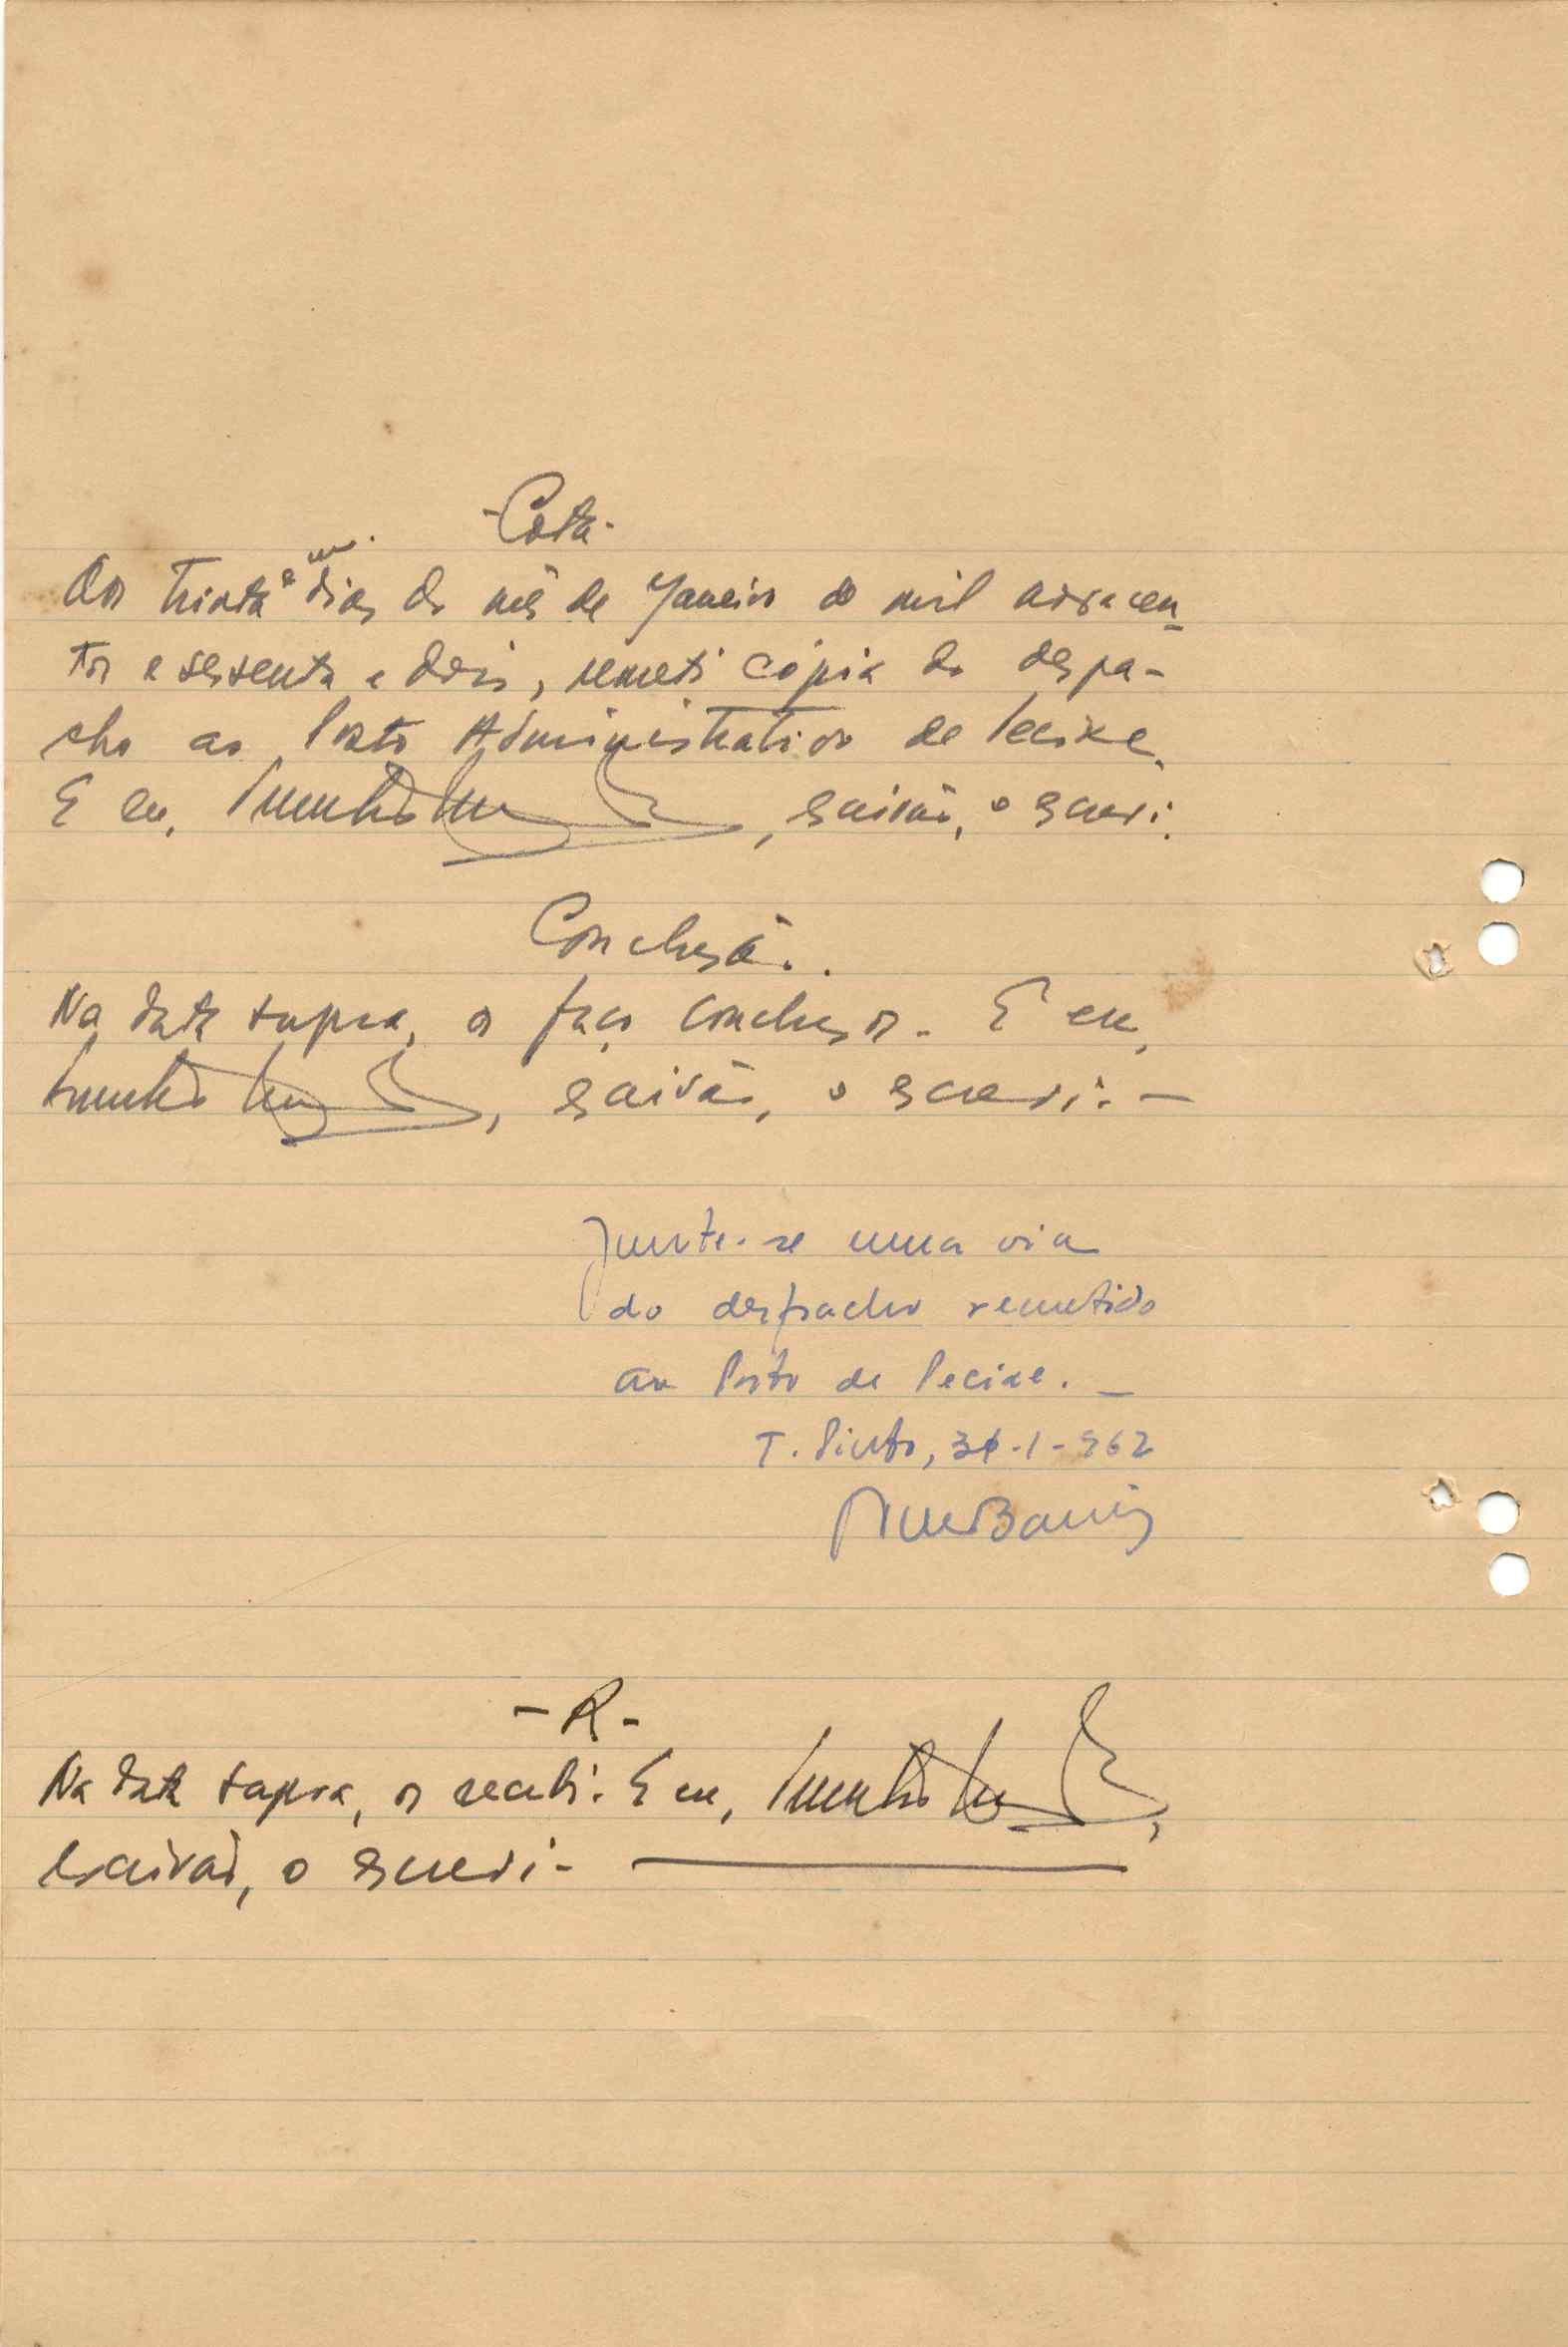 - Cota -
Aos trinta e um dias do mês de Janeiro de mil novecen-
tos e sessenta e dois, remeti cópia do despa-
cho ao Posto Administrativo de Pecixe.
E eu, , escrivão, o escrevi.
Conclusão.
Na data supra, os faço conclusos. E eu,
, escrivão, o escrevi. —
Junte-se uma via
do despacho remetido
ao Posto de Pecixe. —
T. Pinto, 31-1-962
- R -
Na data supra, os recebi. E eu, ,
escrivão, o escrevi. —